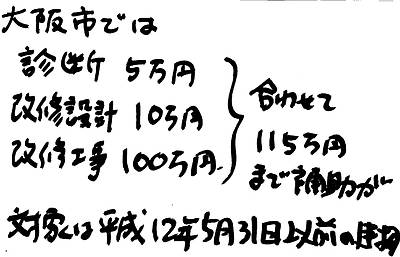 大阪市では
診断 5万円
改修設計 10万円
改修工事 100万円
合わせて
115万円
まで補助が
対象は平成12年5月31日以前の